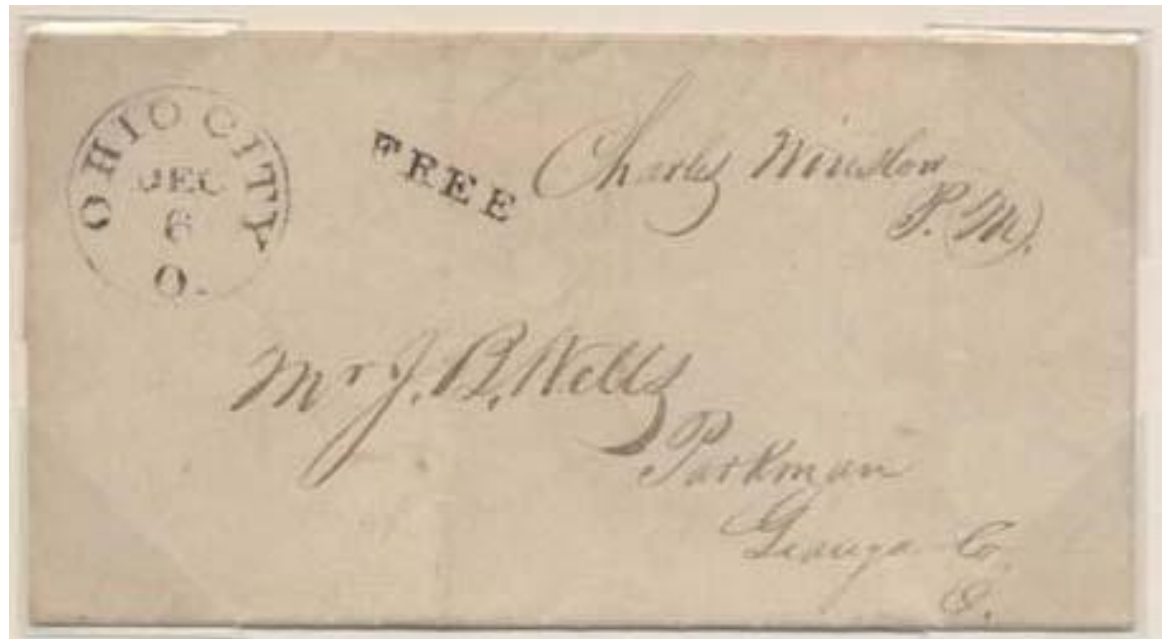 OHIO CITY
DEC
6
O.
FREE
Charles Winslow
P.M.
Mr J. B. Wells
Parkman
Geauga Co.
O.